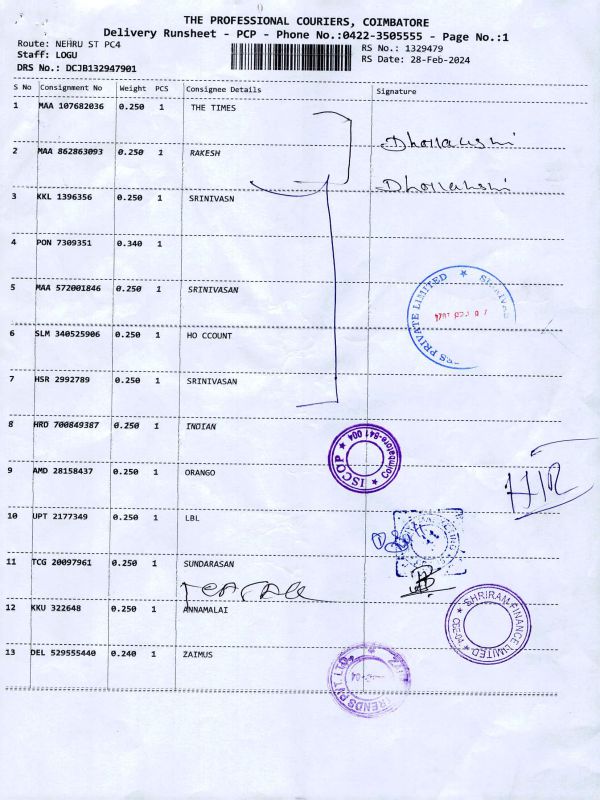 THE PROFESSIONAL COURIERS, COIMBATORE
Delivery Runsheet - PCP - Phone No.:0422-3505555 - Page No.:1
Route: NEHRU ST PC4 RS No.: 1329479
Staff: LOGU RS Date: 28-Feb-2024
DRS No.: DCJB132947901
S No Consignment No Weight PCS Consignee Details Signature
1 MAA 107682036 0.250 1 THE TIMES
2 MAA 862863093 0.250 1 RAKESH
3 KKL 1396356 0.250 1 SRINIVASN
4 PON 7309351 0.340 1
5 MAA 572001846 0.250 1 SRINIVASAN
PRIVATE LIMITED ★
6 SLM 340525906 0.250 1 HO CCOUNT
7 HSR 2992789 0.250 1 SRINIVASAN
8 HRD 700849387 0.250 1 INDIAN
ISCOP ★ Coimbatore-641 004 ★
9 AMD 28158437 0.250 1 ORANGO
10 UPT 2177349 0.250 1 LBL
11 TCG 20097961 0.250 1 SUNDARASAN
12 KKU 322648 0.250 1 ANNAMALAI
SHRIRAM FINANCE LIMITED
13 DEL 529555440 0.240 1 ZAIMUS
TRENDS PVT LTD.